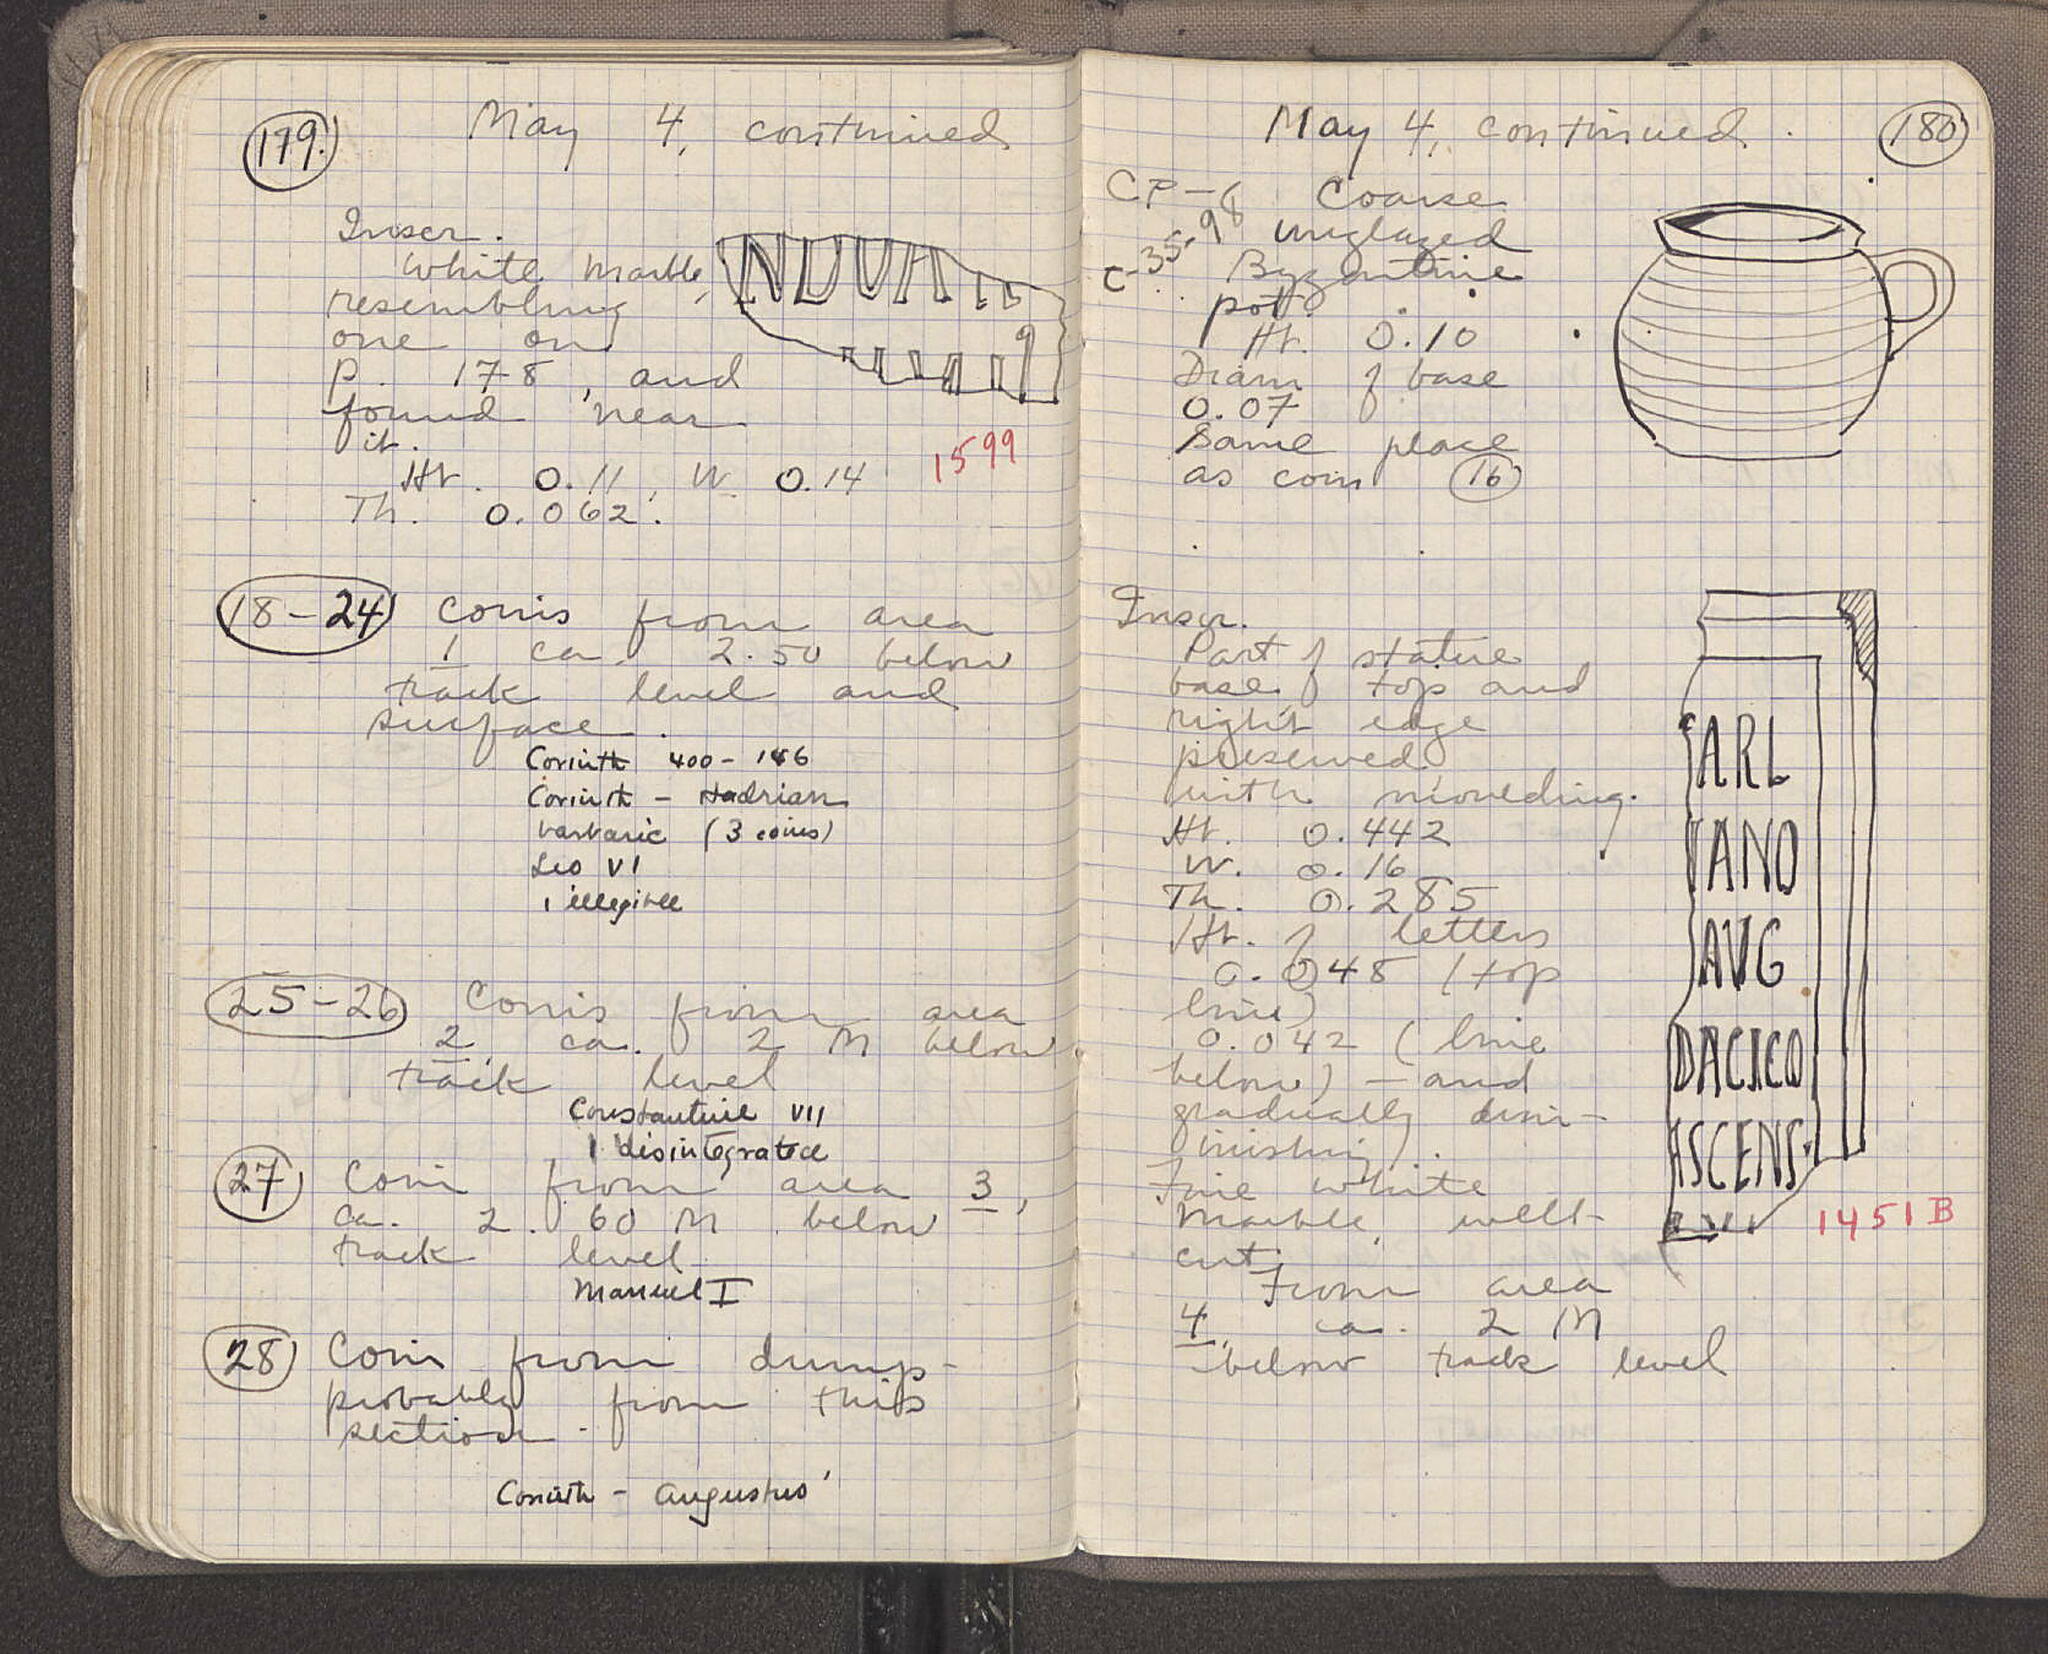 179.
May 4, continued
Inscr.
White marble,
resembling
one on
p. 178, and
found near
it.
Ht. 0.11, W. 0.14
Th. 0.062.
1599
18-24 Coins from area
1 ca. 2.50 below
track level and
surface.
Corinth 400-146
Corinth - Hadrian
barbaric (3 coins)
Leo VI
1 illegible
25-26 Coins from area
2, ca. 2 M below
track level
Constantine VII
1 disintegrated
27 Coin from area 3,
ca. 2.60 M below
track level
Manuel I
28 Coin from dump -
probably from this
section.
Corinth - Augustus
May 4, continued.
180
CP-6 Coarse
C-35-98 unglazed
Byzantine
pot.
Ht. 0.10
Diam of base
0.07
Same place
as coin 16
Inscr.
Part of statue
base, top and
right edge
preserved
with moulding.
Ht. 0.442
W. 0.16
Th. 0.285
Ht. of letters
0.048 (top
line)
0.042 (line
below) - and
gradually dim-
inishing).
Fine white
marble, well-
cut.
From area
4, ca. 2 M
below track level
ARL
IANO
AVG
DACICO
ASCENS·
1451B